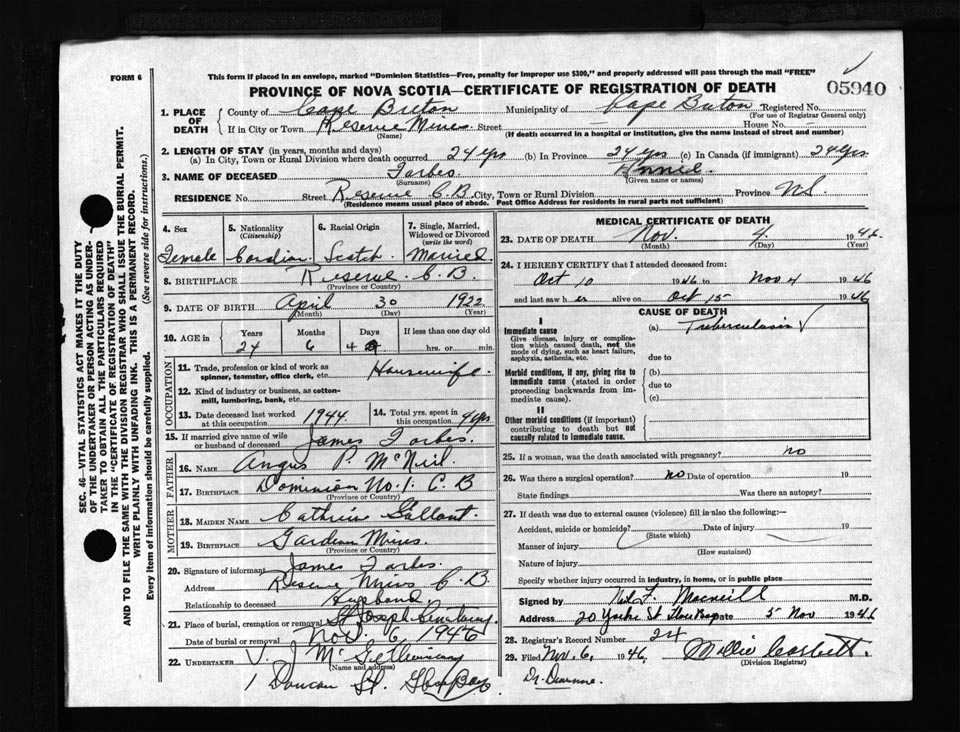 FORM 6
This form if placed in an envelope, marked "Dominion Statistics—Free, penalty for improper use $300," and properly addressed will pass through the mail "FREE"
PROVINCE OF NOVA SCOTIA—CERTIFICATE OF REGISTRATION OF DEATH
05940
1. PLACE OF DEATH
County of Cape Breton Municipality of Cape Breton Registered No.
(For use of Registrar General only)
If in City or Town Reserve Mines Street House No.
(Name) (If death occurred in a hospital or institution, give the name instead of street and number)
2. LENGTH OF STAY (in years, months and days)
(a) In City, Town or Rural Division where death occurred 24 yrs (b) In Province 24 yrs (c) In Canada (if immigrant) 24 yrs.
3. NAME OF DECEASED Forbes
(Surname) (Given name or names)
RESIDENCE No. Street Reserve C.B. City, Town or Rural Division Province N.S.
(Residence means usual place of abode. Post Office Address for residents in rural parts not sufficient)
4. Sex 5. Nationality (Citizenship) 6. Racial Origin 7. Single, Married, Widowed or Divorced (write the word)
Female Scotch Married
8. BIRTHPLACE Reserve C.B.
(Province or Country)
9. DATE OF BIRTH April 30 1922
(Month) (Day) (Year)
10. AGE in Years Months Days If less than one day old
24 6 4 hrs. or min.
OCCUPATION
11. Trade, profession or kind of work as spinner, teamster, office clerk, etc. Housewife
12. Kind of industry or business, as cotton-mill, lumbering, bank, etc.
13. Date deceased last worked at this occupation 1944. 14. Total yrs. spent in this occupation 4 yrs
15. If married give name of wife or husband of deceased James Forbes.
FATHER
16. NAME Angus P. McNeil.
17. BIRTHPLACE Dominion No. 1. C.B
(Province or Country)
MOTHER
18. MAIDEN NAME Gallant
19. BIRTHPLACE Mines.
(Province or Country)
20. Signature of informant James Forbes.
Address Reserve Mines C.B.
Relationship to deceased Husband
21. Place of burial, cremation or removal St Joseph Cemetery.
Date of burial or removal Nov. 6, 1946
22. UNDERTAKER V. J.
(Name and address)
1 Duncan St. Glace Bay
MEDICAL CERTIFICATE OF DEATH
23. DATE OF DEATH Nov. 4. 1946.
(Month) (Day) (Year)
24. I HEREBY CERTIFY that I attended deceased from:
Oct 10 1946 to Nov 4 1946
and last saw h er alive on Oct 15 1946
CAUSE OF DEATH
I
Immediate cause (a) Tuberculosis
Give disease, injury or complication which caused death, not the mode of dying, such as heart failure, asphyxia, asthenia, etc. due to
Morbid conditions, if any, giving rise to immediate cause (stated in order proceeding backwards from immediate cause). (b)
due to
(c)
II
Other morbid conditions (if important) contributing to death but not causally related to immediate cause.
25. If a woman, was the death associated with pregnancy? no
26. Was there a surgical operation? no Date of operation 19
State findings Was there an autopsy?
27. If death was due to external causes (violence) fill in also the following:—
Accident, suicide or homicide? Date of injury 19
(State which)
Manner of injury
(How sustained)
Nature of injury
Specify whether injury occurred in industry, in home, or in public place
Signed by Macneill M.D.
Address 20 Yorke St Glace Bay Date 5 Nov 1946
28. Registrar's Record Number 24
29. Filed Nov. 6, 1946. Mollie Corbett.
(Division Registrar)
SEC. 46—VITAL STATISTICS ACT MAKES IT THE DUTY OF THE UNDERTAKER OR PERSON ACTING AS UNDERTAKER TO OBTAIN ALL THE PARTICULARS REQUIRED IN THE "CERTIFICATE OF REGISTRATION OF DEATH" AND TO FILE THE SAME WITH THE DIVISION REGISTRAR WHO SHALL ISSUE THE BURIAL PERMIT.
WRITE PLAINLY WITH UNFADING INK. THIS IS A PERMANENT RECORD.
Every item of information should be carefully supplied. (See reverse side for instructions.)